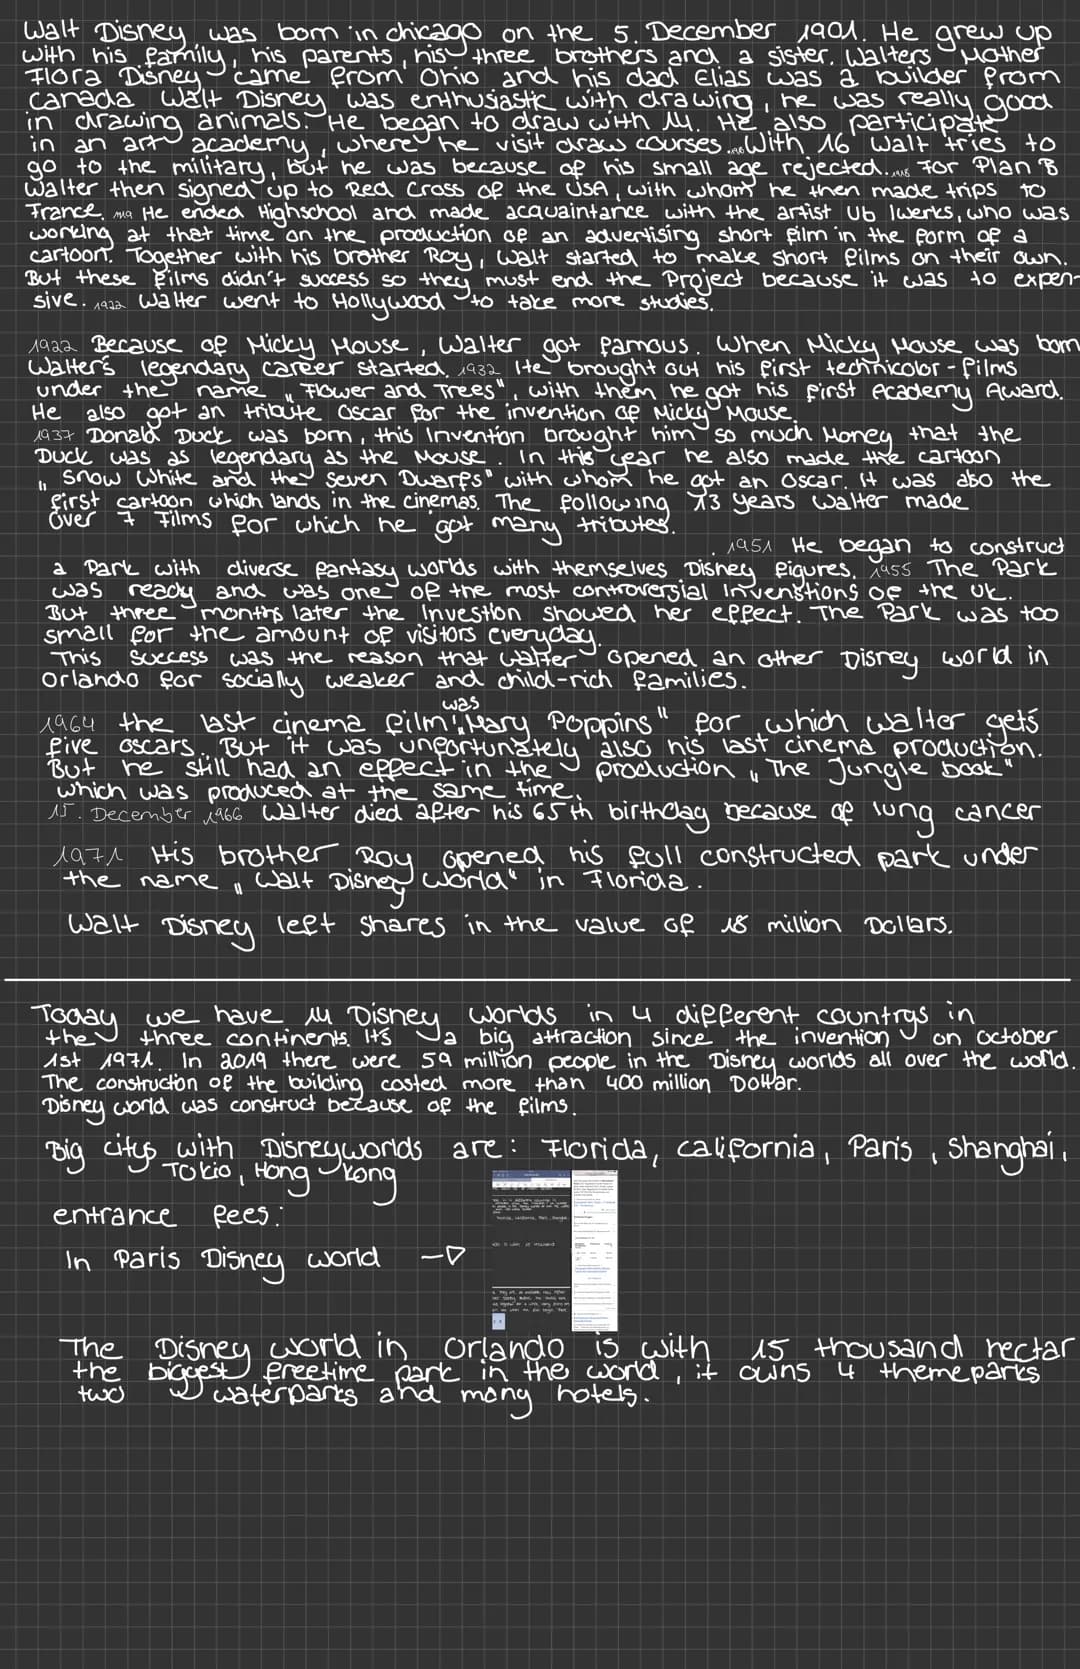 Walt Disney was born in chicago on the 5. December 1901. He grew up
with his family, his parents, his three brothers and a sister. Walters Mother
Flora Disney came from Ohio and his dad Elias was a builder from
Canada Walt Disney was enthusiastic with drawing, he was really good
in drawing animals. He began to draw with 14. He also participate
in an art academy, where he visit draw courses. 1918 With 16 Walt tries to
go to the military, but he was because of his small age rejected. 1918 For Plan B
Walter then signed up to Red Cross of the USA, with whom he then made trips to
France. 1919 He ended Highschool and made acquaintance with the artist Ub Iwerks, who was
working at that time on the production of an advertising short film in the form of a
cartoon. Together with his brother Roy, Walt started to make short films on their own.
But these films didn't success so they must end the Project because it was to expen-
sive. 1922 Walter went to Hollywood to take more studies.
1922 Because of Micky Mouse, Walter got famous. When Micky Mouse was born
Walter's legendary career started. 1932 He brought out his first technicolor-films
under the name „Flower and Trees", with them he got his first Academy Award.
He also got an tribute Oscar for the invention of Micky Mouse.
1937 Donald Duck was born, this Invention brought him so much Money that the
Duck was as legendary as the Mouse. In this year he also made the cartoon
„Snow White and the Seven Dwarfs" with whom he got an Oscar. It was also the
first cartoon which lands in the cinemas. The following 13 years Walter made
over 7 Films for which he got many tributes.
. 1951 He began to construct
a Park with diverse fantasy worlds with themselves Disney figures. 1955 The Park
was ready and was one of the most controversial Inventions of the UK.
But three months later the Investion showed her effect. The Park was too
small for the amount of visitors everyday.
This success was the reason that Walter opened an other Disney world in
Orlando for socially weaker and child-rich families.
was
1964 the last cinema film „Mary Poppins" for which Walter gets
five oscars. But it was unfortunately also his last cinema production.
But he still had an effect in the production „The Jungle book"
which was produced at the same time.
15. December 1966 Walter died after his 65th birthday because of lung cancer
1971 His brother Roy opened his full constructed park under
the name „Walt Disney World" in Florida.
Walt Disney left shares in the value of 18 million Dollars.
Today we have 14 Disney Worlds in 4 different countrys in
the three continents. It's a big attraction since the invention on October
1st 1971. In 2019 there were 59 million people in the Disney worlds all over the world.
The construction of the building costed more than 400 million Dollar.
Disney world was construct because of the films.
Big citys with Disneyworlds are: Florida, california, Paris, Shanghai,
Tokio, Hong Kong
entrance fees:
In Paris Disney world
The Disney world in Orlando is with 15 thousand hectar
the biggest freetime park in the world, it owns 4 themeparks
two waterparks and many hotels.